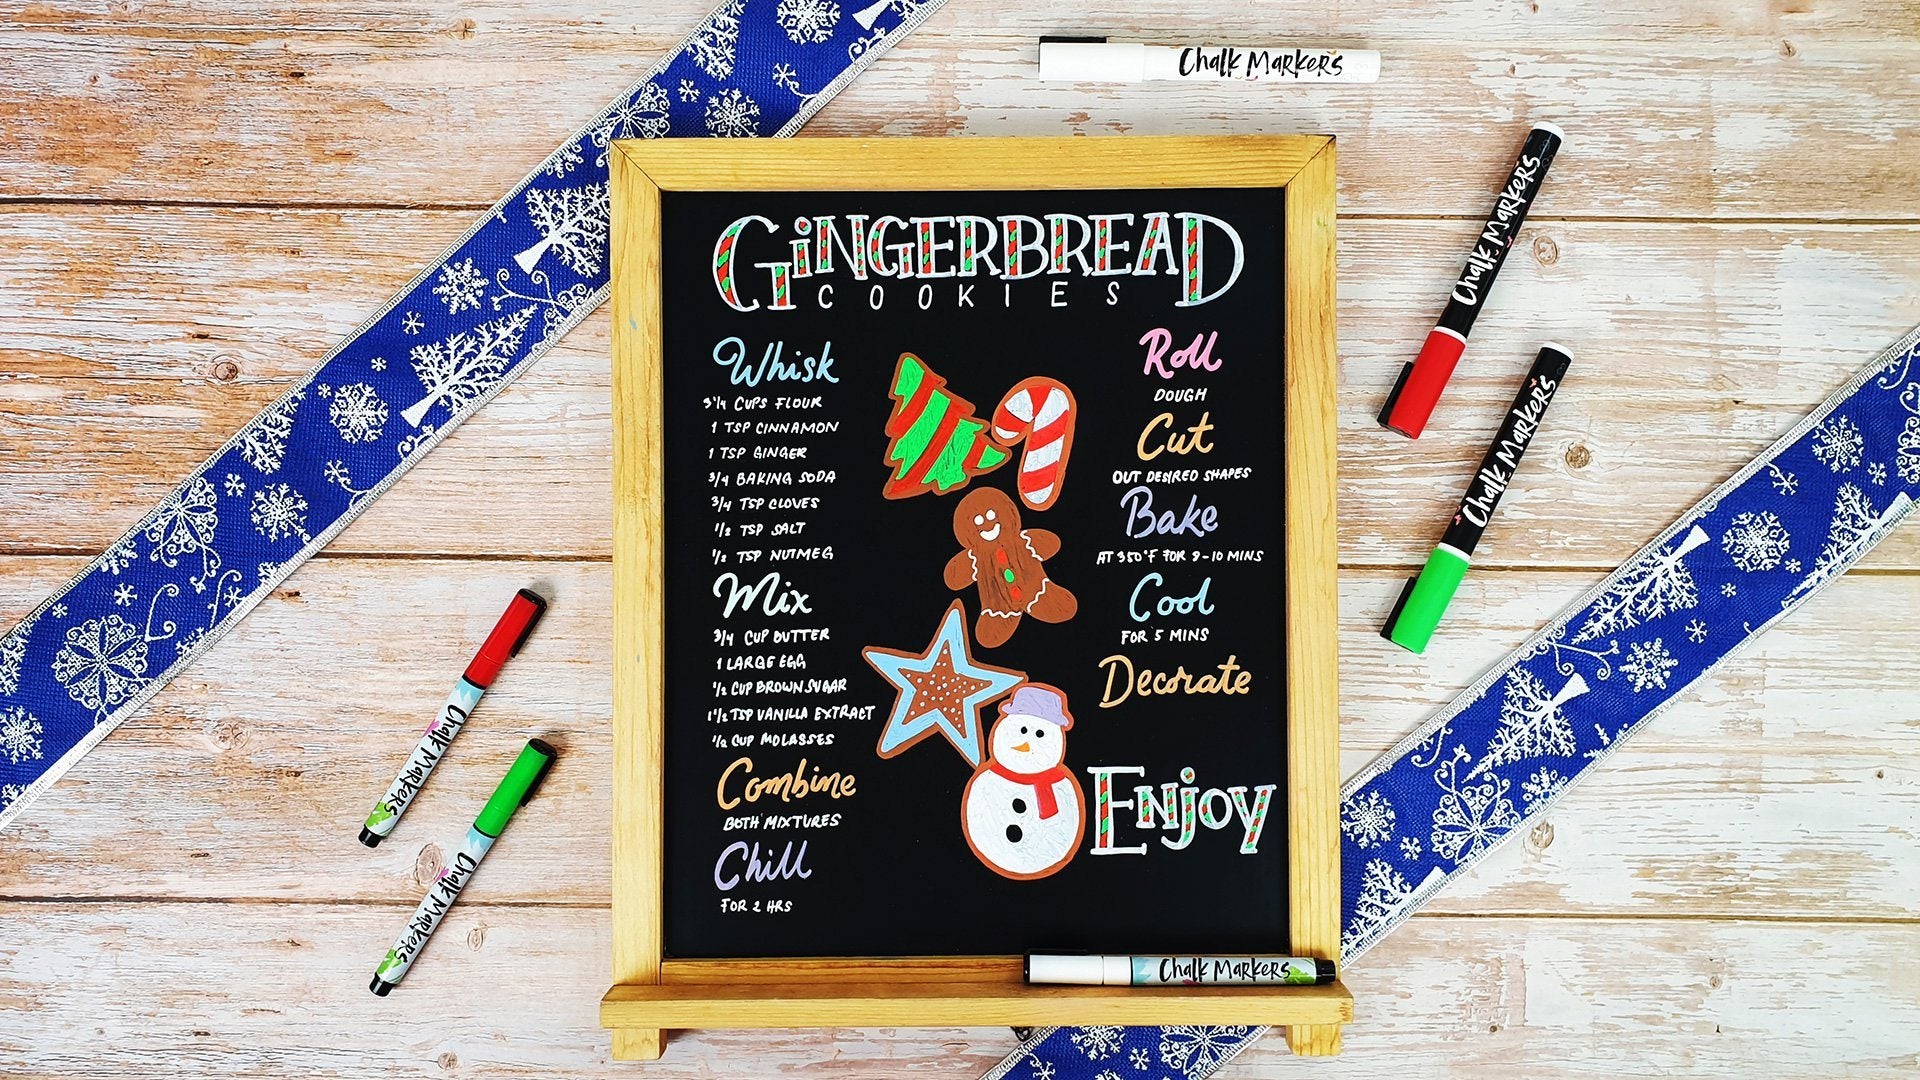 Chalk Markers
GiNGERBREAD
COOKIES
Whisk
3 1/4 CUPS FLOUR
1 TSP CINNAMON
1 TSP GINGER
3/4 BAKING SODA
3/4 TSP CLOVES
1/2 TSP SALT
1/2 TSP NUTMEG
Mix
3/4 CUP BUTTER
1 LARGE EGG
1/2 CUP BROWN SUGAR
1 1/2 TSP VANILLA EXTRACT
1/2 CUP MOLASSES
Combine
BOTH MIXTURES
Chill
FOR 2 HRS
Roll
DOUGH
Cut
OUT DESIRED SHAPES
Bake
AT 350°F FOR 8-10 MINS
Cool
FOR 5 MINS
Decorate
ENjoy
Chalk Markers
Chalk Markers
Chalk Markers
Chalk Markers
Chalk Markers